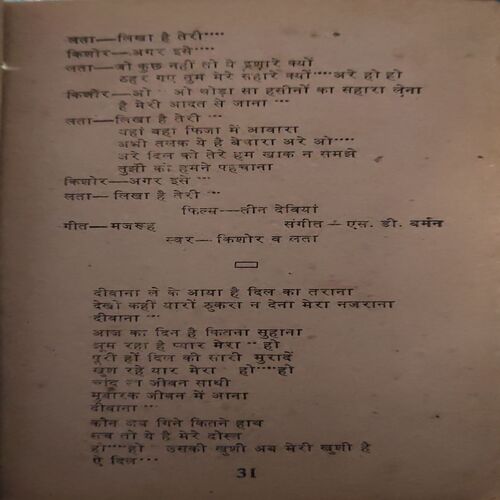 लता—लिखा है तेरी····
किशोर—अगर इसे····
लता—जो कुछ नहीं तो ये इशारे क्यों
ठहर गए तुम मेरे सहारे क्यों····अरे हो हो
किशोर—ओ ओ थोड़ा सा हसीनों का सहारा लेना
है मेरी आदत ले जाना ···
लता—लिखा है तेरी ···
यहां वहां फिजा में आवारा
अभी तलक ये है बेचारा अरे ओ····
अरे दिल को तेरे हम खाक न समझे
तुझी को हमने पहचाना
किशोर—अगर इसे ···
लता— लिखा है तेरी ···
फिल्म—तीन देवियां
गीत—मजरूह संगीत — एस. डी. बर्मन
स्वर—किशोर व लता
दीवाना ले के आया है दिल का तराना
देखो कहीं यारों ठुकरा न देना मेरा नजराना
दीवाना ···
आज का दिन है कितना सुहाना
झूम रहा है प्यार मेरा ·· हो
पूरी हों दिल की सारी मुरादें
खुश रहे यार मेरा हो····हो
जीवन साथी
मुबारक जीवन में आना
दीवाना ···
कौन अब गिने कितने हाथ
सच तो ये है मेरे दोस्त
हो····हो उसकी खुशी अब मेरी खुशी है
ऐ दिल····
31